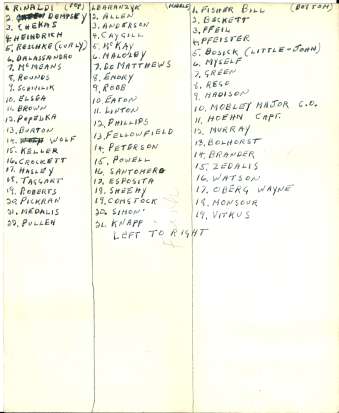 1. RINALDI (POP)
2. DEMPSEY
3. CHEKAS
4. HEINDRICH
5. RESHKE (CURLY)
6. DALASSANDRO
7. McMEANS
8. ROUNDS
9.
10. ELSEA
11. BROWN
12. POPELKA
13. BURTON
14. WOLF
15. KELLER
16. CROCKETT
17. HASLEY
18. TAGGART
19. ROBERTS
20. PICKRAN
21. MEDALIS
22. PULLEN
1. BARANZYK (MIDDLE)
2. ALLEN
3. ANDERSON
4. CAYGILL
5. McKAY
6. MALOZEY
7. DE MATTHEWS
8. EMORY
9. ROBB
10. EATON
11. LINTON
12. PHILLIPS
13. FELLOWFIELD
14. PETERSON
15. POWELL
16. SANTOMERO
17. ESPOSITA
18. SHEEHY
19. COMSTOCK
20. SIMON
21. KNAPP
LEFT TO RIGHT
1. FISHER BILL (BOTTOM)
2. BECKETT
3. PFEIL
4. PFEISTER
5. BUSICK (LITTLE-JOHN)
6. MYSELF
7. GREEN
8. REGO
9. MADISON
10. MOBLEY MAJOR C.O.
11. HOEHN CAPT.
12. MURRAY
13. BOLHORST
14. BRANDER
15. ZEDALIS
16. WATSON
17. OBERG WAYNE
18. MONSOUR
19. VITKUS